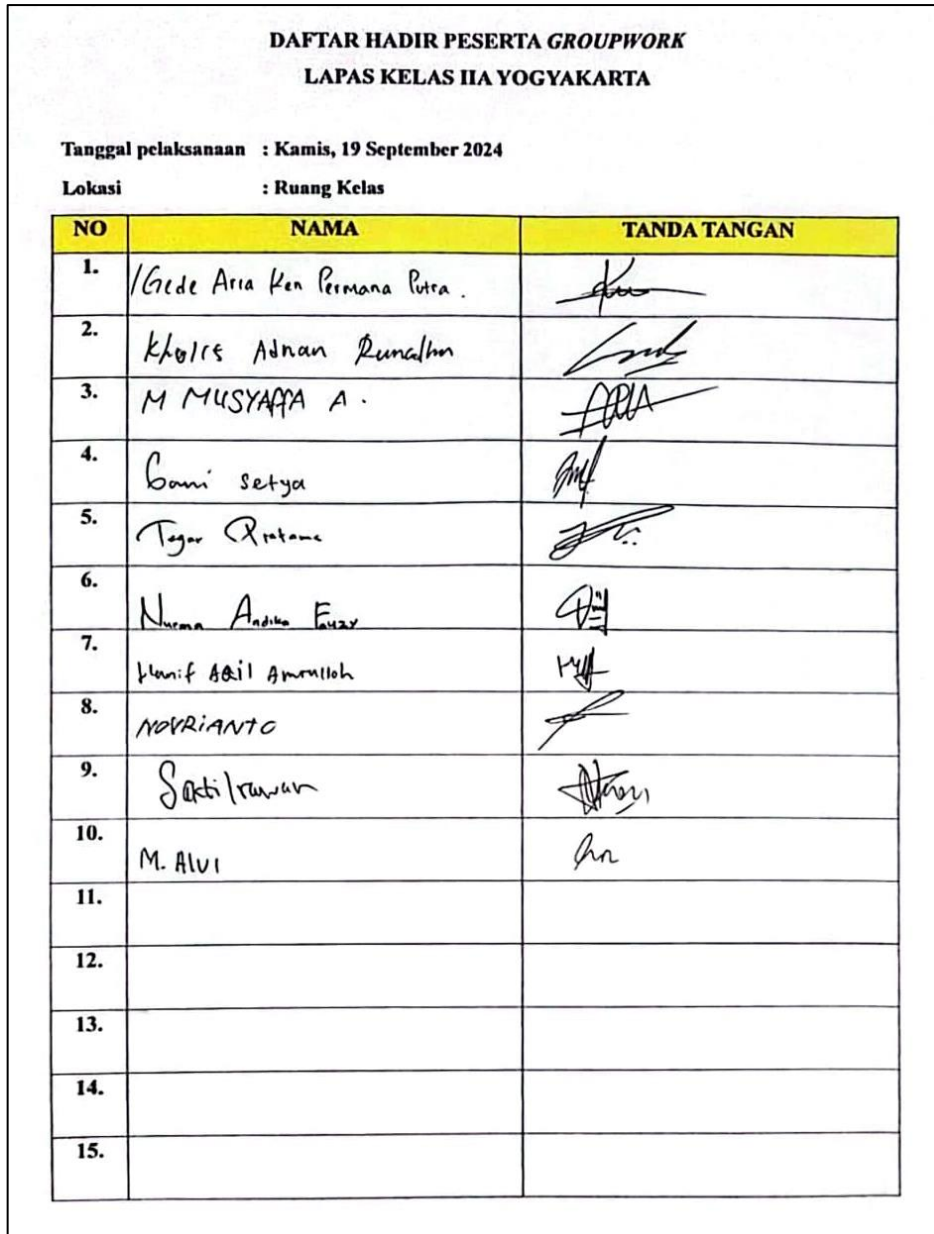 DAFTAR HADIR PESERTA GROUPWORK
LAPAS KELAS IIA YOGYAKARTA
Tanggal pelaksanaan : Kamis, 19 September 2024
Lokasi : Ruang Kelas
NO NAMA TANDA TANGAN
1. I Gede Aria Ken Permana Putra.
2. Kholis Adnan
3. M MUSYAFFA A.
4. setya
5. Tegar Pratama
6. Andika Fauzy
7. Hanif Aqil Amrulloh
8. NOVRIANTO
9. Sakti Irawan
10. M. Alvi
11.
12.
13.
14.
15.